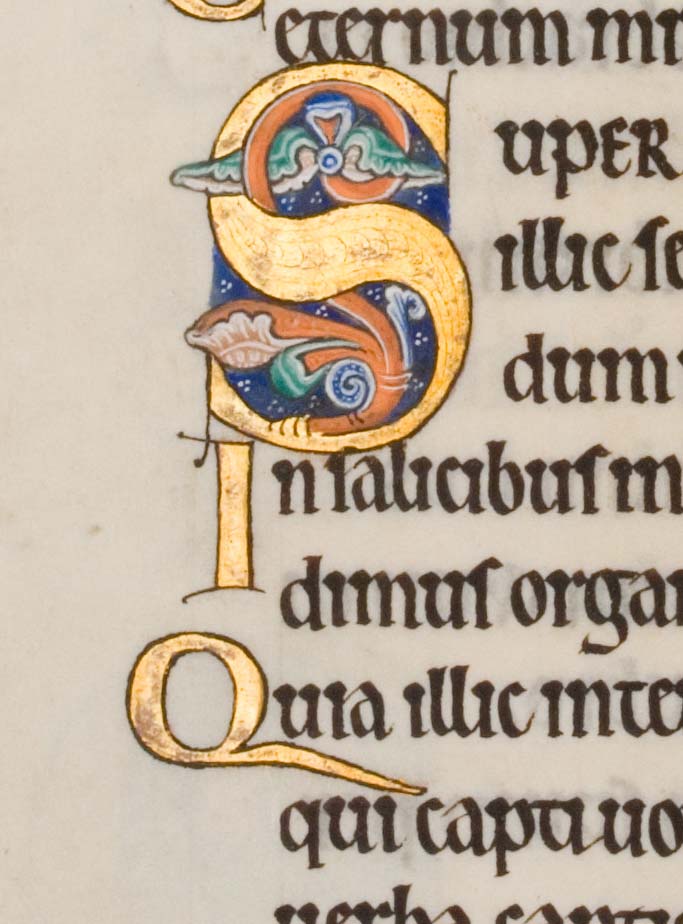 eternum mi
SUPER
illic se
dum
In salicibus in
dimus orga
Quia illic inte
qui captiuo
uerba canti